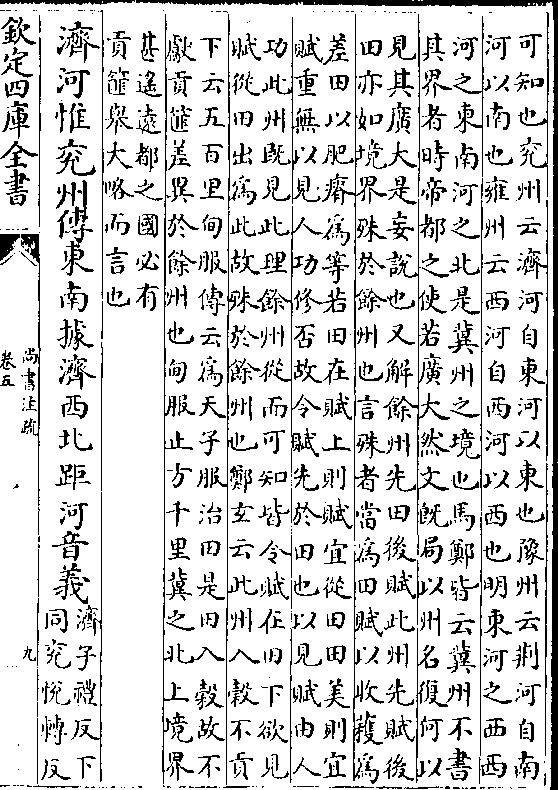 可知也兖州云濟河自東河以東也豫州云荆河自南
河以南也雍州云西河自西河以西也明東河之西西
河之東南河之北是冀州之境也馬鄭皆云冀州不書
其界者時帝都之使若廣大然文既局以州名復何以
見其廣大是妄說也又解餘州先田後賦此州先賦後
田亦如境界殊於餘州也言殊者當爲田賦以收穫爲
差田以肥瘠爲等若田在賦上則賦宜從田田美則宜
賦重無以見人功修否故令賦先於田也以見賦由人
功此州既見此理餘州從而可知皆令賦在田下欲見
賦從田出爲此故殊於餘州也鄭玄云此州入穀不貢
下云五百里甸服傳云爲天子服治田是田入穀故不
獻貢篚差異於餘州也甸服止方千里冀之北土境界
甚遥遠都之國必有
貢篚舉大略而言也
濟河惟兖州傳東南據濟西北距河音義
濟子禮反下
同兖悅轉反
欽定四庫全書
尚書注疏
卷五
九